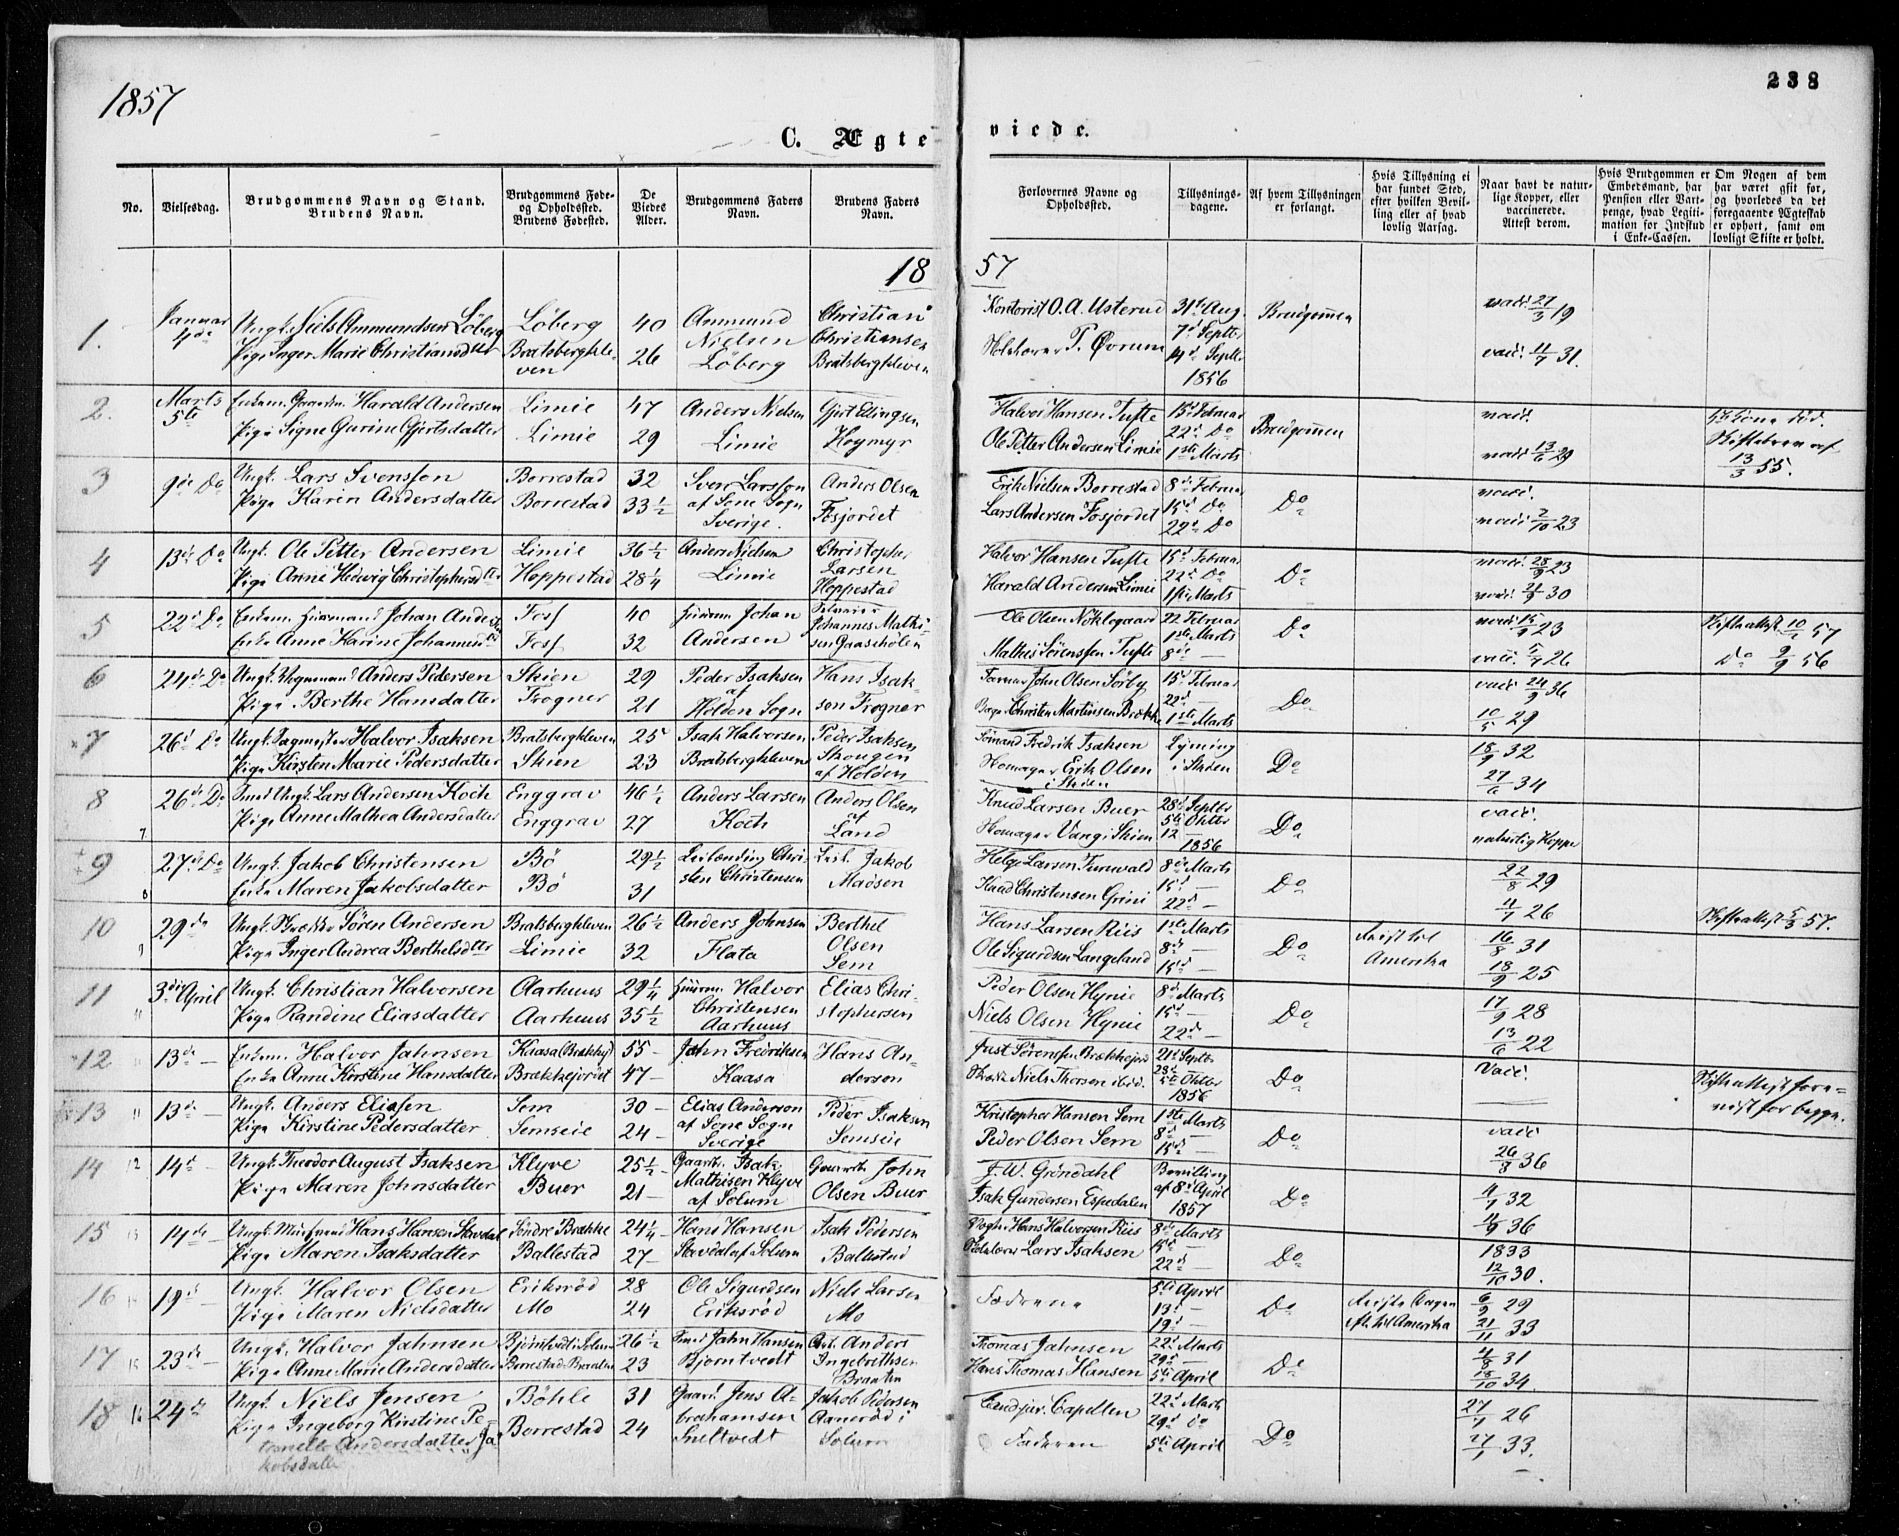 1857
238
C. Ægte
viede.
No.
Vielsesdag.
Brudgommens Navn og Stand.
Brudens Navn.
Brudgommens Føde-
og Opholdssted.
Brudens Fødested.
De
Viedes
Alder.
Brudgommens Faders
Navn.
Brudens Faders
Navn.
Forlovernes Navne og
Opholdssted.
Tillysnings-
dagene.
Af hvem Tillysningen
er forlangt.
Hvis Tillysning ei
har fundet Sted,
efter hvilken Bevil-
ling eller af hvad
lovlig Aarsag.
Naar havt de natur-
lige Kopper, eller
vaccinerede.
Attest derom.
Hvis Brudgommen er
Embedsmand, har
Pension eller Vart-
penge, hvad Legiti-
mation for Indskud
i Enke-Cassen.
Om Nogen af dem
har været gift før,
og hvorledes da det
foregaaende Ægteskab
er ophørt, samt om
lovligt Skifte er holdt.
18
57
1.
Januar
4de
Ungk. Niels Ammundsen Löberg
Pige Inger Marie Christiansdtr
Löberg
Bratsbergkle-
ven
40
26
Ammund
Nielsen
Löberg
Christian
Christiansen
Bratsbergkleven
Kontorist O. A. Usterud
P. Övrum
31te Aug
7d Septbr
14d Septbr
1856
Brudgommen
vacc. 27/3 19
vacc. 11/7 31.
2.
Marts
5te
Enkem. Gaardm. Harald Andersen
Pige Signe Gurine Gjertsdatter
Limie
Limie
47
29
Anders Nielsen
Limie
Gjert Ellingsen
Kogmyr
Halvor Hansen Tufte
Ole Petter Andersen Limie
15d Februar
22d Do
1ste Marts
Brudgommen
vacc.
vacc 13/6 29
Skiftebrev af
13/3 55.
3
9de Do
Ungk. Lars Svensson
Pige Karen Andersdatter
Borrestad
Borrestad
32
33 1/2
Sven Larsson
af Sone Sogn
Sverige.
Anders Olsen
Fosjordet
Erik Nielsen Borrestad
Lars Andersen Fosjordet
8d Februar
15d Do
22d Do
Do
vacc.
vacc 2/10 23
4
13de Do
Ungk. Ole Petter Andersen
Pige Anne Hedvig Christophersdtr
Limie
Hoppestad
36 1/2
28 1/4
Anders Nielsen
Limie
Christopher
Larsen
Hoppestad
Halvor Hansen Tufte
Harald Andersen Limie
15d Februar
22d Do
1ste Marts
Do
vacc. 28/9 23
vacc. 21/9 30
5
22d Do
Enkem. Huusmand Johan Andersen
Enke Anne Karine Johannesdtr
Foss
Foss
40
32
Huusm. Johan
Andersen
Johannes Mathi-
sen Gaasehölen
Ole Olsen Nöklegaard
Mathis Sörenssen Tufte
22 Februar
1ste Marts
8de —
Do
vacc 15/9 23
vacc. 5/7 26
Skifteattest 10/2 57
Do 9/9 56
6
24d Do
Ungk. Anders Pedersen
Pige Berthe Hansdatter
Skien
Frogner
29
21
Peder Isaksen
af
Holden Sogn
Hans Isak-
sen Frogner
John Olsen Sörby
Christen Martinsen Brække
15d Februar
22d —
1ste Marts
Do
vacc 24/9 36
10/5 29
7
26d Do
Ungk. Halvor Isaksen
Pige Kirsten Marie Pedersdatter
Bratsbergkleven
Skien
25
23
Isak Halvorsen
Bratsbergkleven
Peder Isaksen
Skougen
af Holden
Sömand Fredrik Isaksen
Erik Olsen
i Skien
Lysning
i Skien
Do
18/9 32
27/6 34
8
26de Do
Smed Ungk. Lars Andersen Koch
Pige Anne Mathea Andersdatter
Enggrav
Enggrav
46 1/2
27
Anders Larsen
Koch
Anders Olsen
af
Land
Knud Larsen Buer
Vang i Skien
28d Septbr
5te Oktbr
12 —
1856
Do
vacc.
naturlig Kopper
7
9
27d Do
Ungk. Jakob Christensen
Enke Maren Jakobsdatter
Bö
Bö
29 1/2
31
Leilænding Chri-
sten Christensen
Leil. Jakob
Madsen
Helge Larsen
Knud Christensen Grini
8de Marts
15d —
22d —
Do
22/8 29
4/7 26
8
10
29de
Ungk. Sören Andersen
Pige Inger Andrea Berthelsdtr
Bratsbergkleven
Limie
26 1/2
32
Anders Johnsen
Flata
Berthel
Olsen
Sem
Hans Larsen Riis
Ole Sigurdsen Langeland
1ste Marts
8d —
15d —
Do
Reist til
Amerika
16/8 31
18/9 25
Skifteattest 5/3 57.
9
11
3de April
Ungk. Christian Halvorsen
Pige Randine Eliasdatter
Aarhuus
Aarhuus
29 1/4
35 1/2
Huusm. Halvor
Christensen
Aarhuus
Elias Chri-
stophersen
Peder Olsen Hynie
Niels Olsen Hynie
8d Marts
15d —
22d —
Do
17/9 28
13/6 22
12
13de —
Enkem. Halvor Jahnsen
Enke Anne Kirstine Hansdatter
Brækkejordet
55 —
47 —
John Fredriksen
Kaasa
Hans An-
dersen
Just Sörenssen Brækkejord
Niels Thorsen ibid.
21d Septbr
28d
5te Oktbr
1856
Do
Vacc.
Skifteattest fore-
vist for begge.
13
11
13de —
Ungk. Anders Eliesen
Pige Kirstine Pedersdatter
Sem
Semseie
30 —
24 —
Elias Anderson
af Sone Sogn
Sverige
Peder Isaksen
Semseie
Kristopher Hansen Sem
Peder Olsen Sem
1ste Marts
8d —
15d —
Do
vacc
26/8 36
14
12
14d —
Ungk. Theodor August Isaksen
Pige Maren Johnsdatter
Klyve
Buer
25 1/2
21 —
Gaardb. Isak
Mathisen Klyve
af Solum
Gaardb. John
Olsen Buer
J. W. Gröndahl
Isak Gundersen Espedalen
Bevilling
af 8d April
1857
Do
4/7 32
4/9 36
15
14de —
Ungk. Hans Hansen Stavdal
Pige Maren Isaksdatter
Söndre Brække
Ballestad
24 1/4
27 —
Hans Hansen
Stavdal af Solum
Isak Pedersen
Ballestad
Hans Halvorsen Riis
Lars Isaksen
8de Marts
15d —
22d —
Do
1833
12/10 30.
16
19d —
Ungk. Halvor Olsen
Pige Maren Nielsdatter
Eriksröd
Mo
28
24
Ole Sigurdsen
Eriksröd
Niels Larsen
Mo
Fædrene
5te April
13d —
19d —
Do
Reiste Dagen
til Amerika
6/9 29
21/11 33
17
23de —
Ungk. Halvor Jahnsen
Pige Anne Marie Andersdatter
Bjömtvedt i Solum
26 1/2
23
Smed Jahn Hansen
Bjorntvedt
Anders
Ingebrethsen
Thomas Jahnsen
Hans Thomas Hansen
22d Marts
29d —
5te April
Do
4/8 31
15/10 34.
18
24de
Ungk. Niels Jensen
Pige Ingeborg Kirstine Pe-
tronelle Andersdatter Ja-
kobsdatter
Böhle
Borrestad
31
24
Gaard. Jens A-
brahamsen
Sneltvedt
Jakob Pedersen
Aaneröd i
Solum
Cand jur. Capellen
Faderen
22d Marts
29d do
5te April
Do
27/7 26
27/1 33.